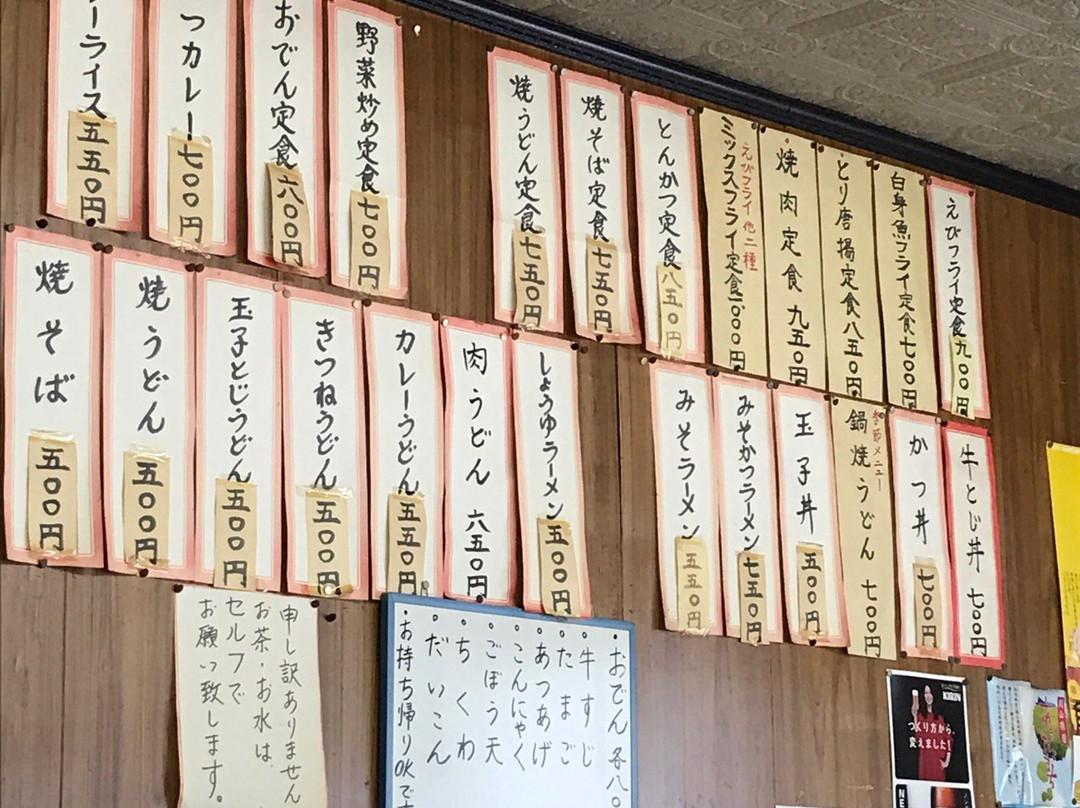 えびフライ定食 九〇〇円
白身魚フライ定食 七〇〇円
とり唐揚定食 八五〇円
焼肉定食 九五〇円
えびフライ 他二種
ミックスフライ定食 一〇〇〇円
とんかつ定食 八五〇円
焼そば定食 七五〇円
焼うどん定食 七五〇円
野菜炒め定食 七〇〇円
おでん定食 六〇〇円
つカレー 七〇〇円
ーライス 五五〇円
牛とじ丼 七〇〇円
かつ丼 七〇〇円
季節メニュー
鍋焼うどん 七〇〇円
玉子丼 五〇〇円
みそかつラーメン 七五〇円
みそラーメン 五五〇円
しょうゆラーメン 五〇〇円
肉うどん 六五〇円
カレーうどん 五五〇円
きつねうどん 五〇〇円
玉子とじうどん 五〇〇円
焼うどん 五〇〇円
焼そば 五〇〇円
・おでん 各八〇
・牛すじ
・たまご
・あつあげ
・こんにゃく
・ごぼう天
・ちくわ
・だいこん
・お持ち帰りOKです
申し訳ありません
お茶・お水は、
セルフで
お願い致します。
KIRIN
つくり方から、
変えました！